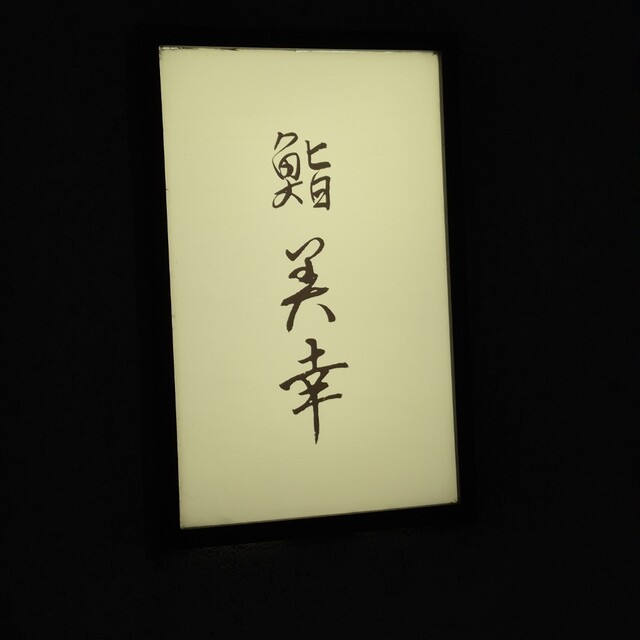 鮨美幸